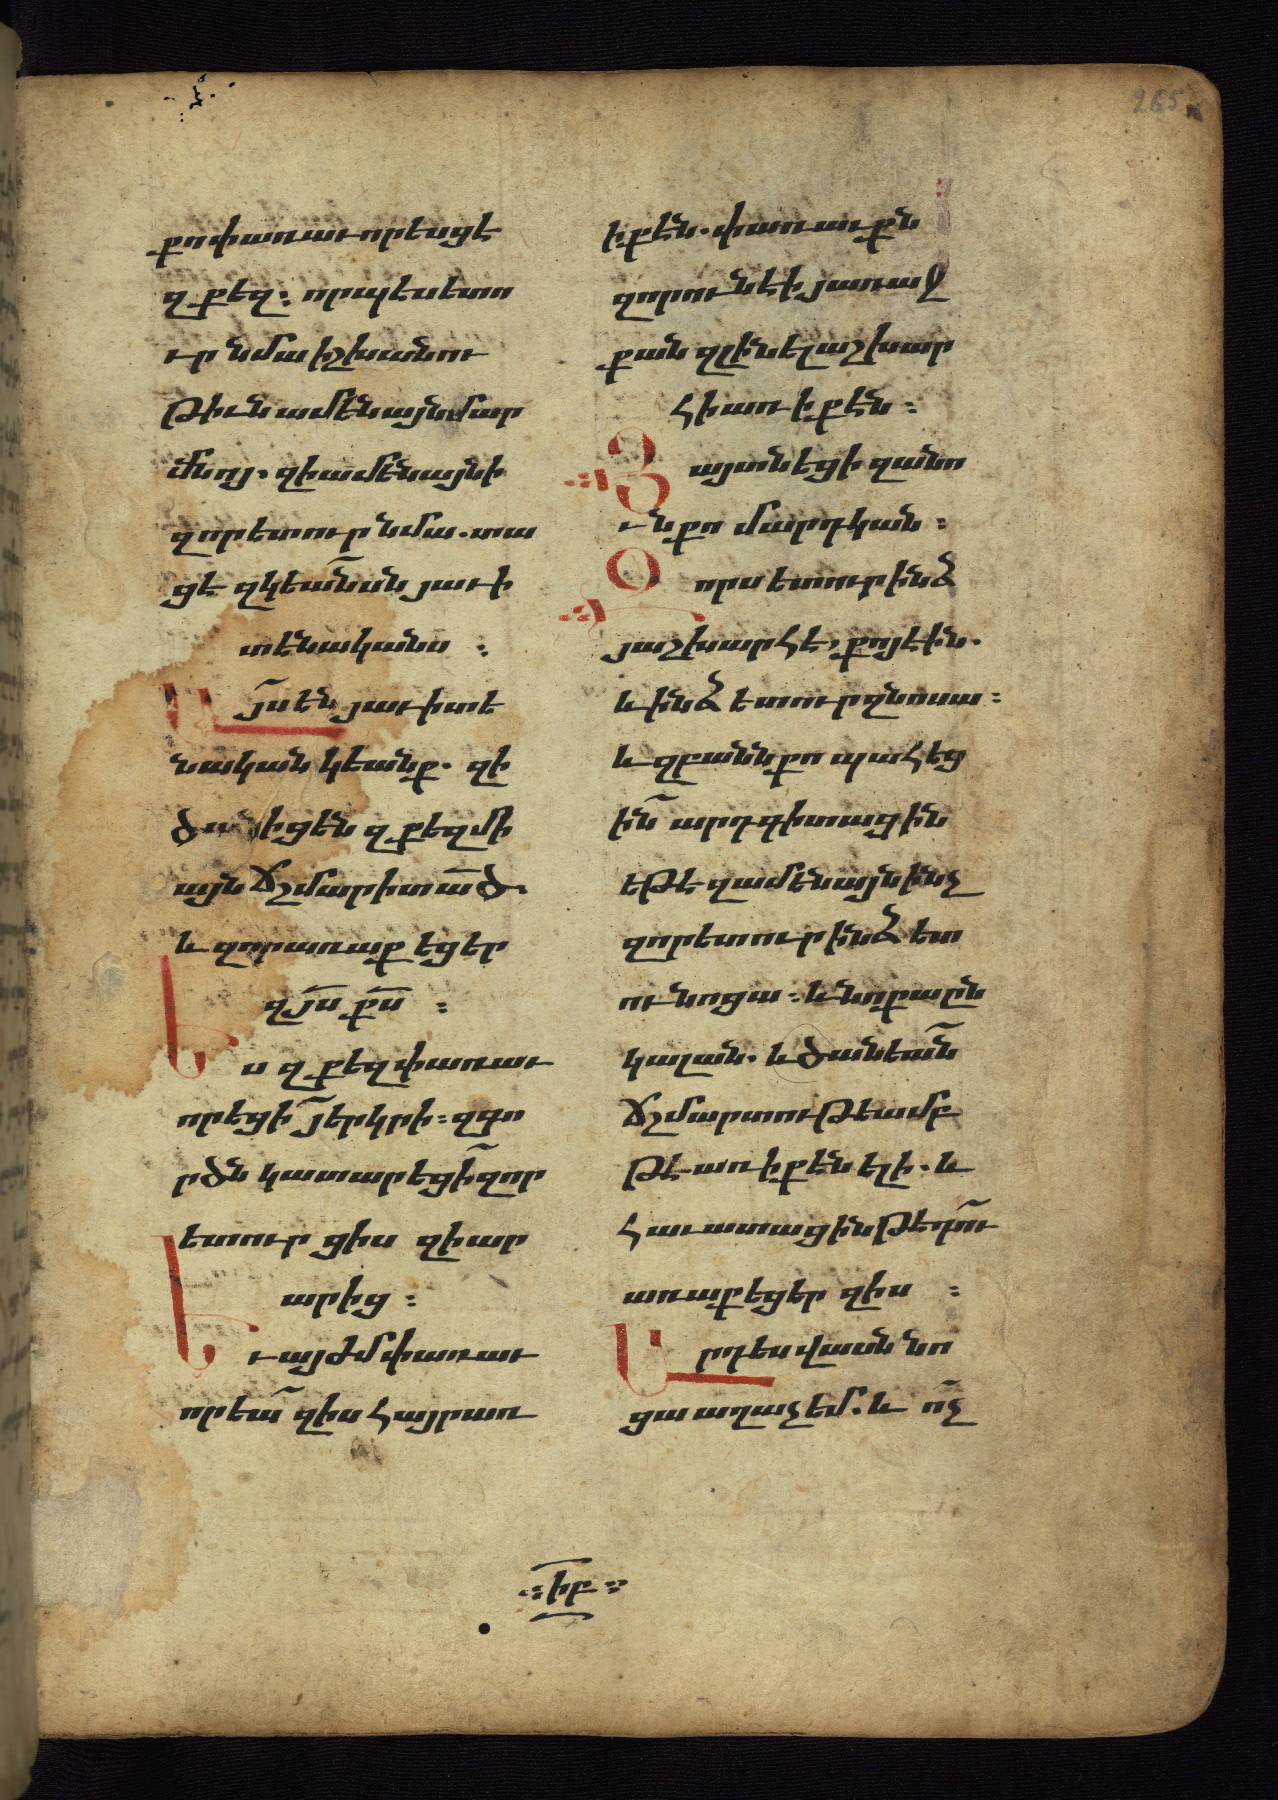 265
քո փառաւորեսցէ
զքեզ։ որպէս ետո
ւր նմա իշխանու
թիւն ամենայն մար
մնոյ. զի ամենայնի
զոր ետուր նմա. տա
ցէ զկեանսն յաւի
տենականս ։
Ա յս են յաւիտե
նական կեանք. զի
ծանիցեն զքեզ մի
այն ճշմարիտ ած.
և զոր առաքեցեր
զյս քս ։
Ես զքեզ փառաւ
որեցի յերկրի։ զգո
րծն կատարեցի զոր
ետուր ցիս զի ար
արից ։
Եւ այժմ փառաւ
որեա զիս հայր առ
ի քէն. փառաւքն
զոր ունէի յառաջ
քան զլինել աշխար
հի առ ի քէն ։
Յայտնեցի զանո
ւն քո մարդկան ։
Զորս ետուր ինձ
յաշխարհէ քոյ էին.
և ինձ ետուր զնոսա ։
և զբանն քո պահեց
ին արդ գիտացին
եթէ զամենայն ինչ
զոր ետուր ինձ ետ
ու նոցա ։ և նոքա ըն
կալան. և ծանեան
ճշմարտութեամբ
թէ առ ի քէն ելի. և
հաւատացին թե դու
առաքեցեր զիս ։
Ա րդ ես վասն նո
ցա աղաչեմ. և ոչ
իբ